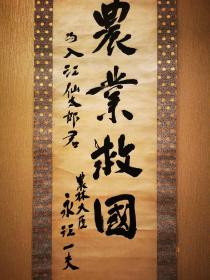 農業救國
為入江仙太郎君
農林大臣
永江一夫